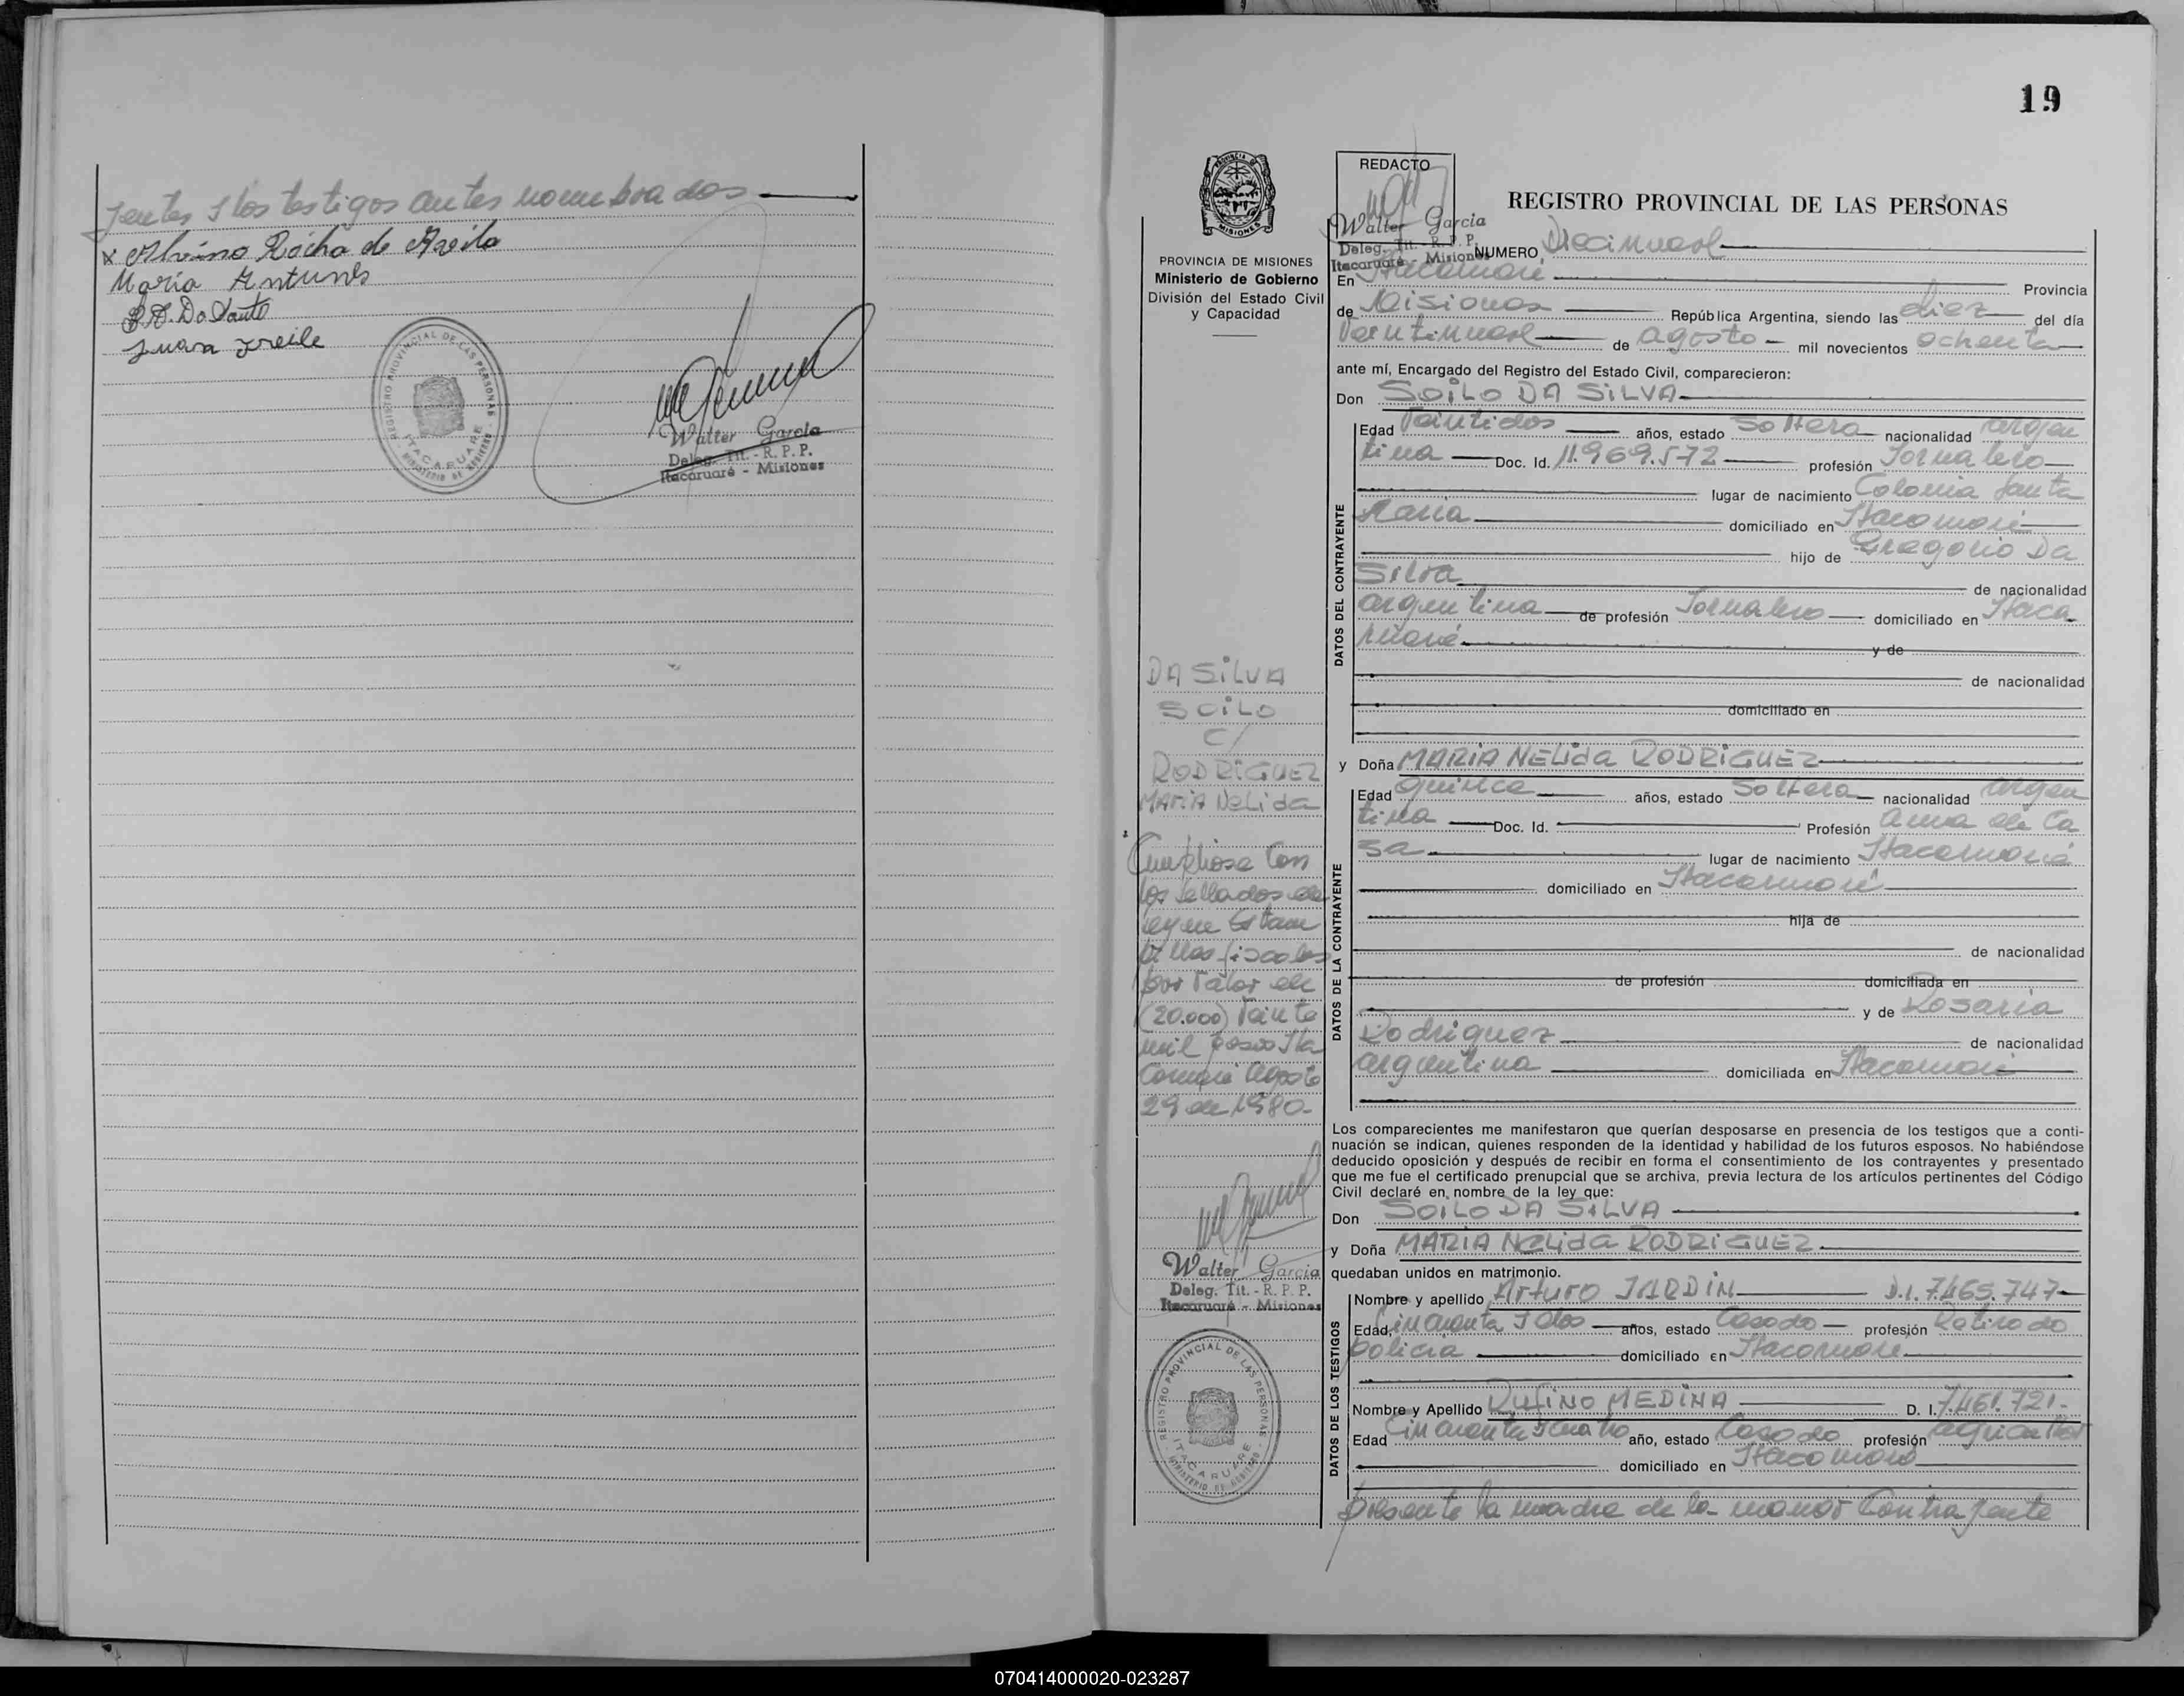 yentes y los testigos antes nombrados
x Alvino Rocha de
Maria Antunes
Do Santo
Juana
REGISTRO PROVINCIAL DE LAS PERSONAS
ITACARUARE
Walter Garcia
Deleg. Tit. - R. P. P.
Itacaruaré - Misiones
19
PROVINCIA DE MISIONES
Ministerio de Gobierno
División del Estado Civil
y Capacidad
REDACTO
Walter Garcia
Deleg. Tit. - R. P. P.
Itacaruaré - Misiones
REGISTRO PROVINCIAL DE LAS PERSONAS
NUMERO Diecinueve
En Itacaruaré Provincia
de Misiones República Argentina, siendo las diez del día
Veintinueve de agosto mil novecientos ochenta
ante mí, Encargado del Registro del Estado Civil, comparecieron:
Don SOILO DA SILVA
Edad Veintidos años, estado Soltero nacionalidad argen
tina Doc. Id. 11.969.572 profesión Jornalero
lugar de nacimiento Colonia Santa
Maria domiciliado en Itacaruaré
hijo de Gregorio Da
Silva de nacionalidad
argentina de profesión Jornalero domiciliado en Itaca
ruaré y de
de nacionalidad
domiciliado en
y Doña MARIA NELIDA RODRIGUEZ
Edad quince años, estado Soltera nacionalidad argen
tina Doc. Id. Profesión ama de Ca
sa lugar de nacimiento Itacaruaré
domiciliado en Itacaruaré
hija de
de nacionalidad
de profesión domiciliada en
y de Rosaria
Rodriguez de nacionalidad
argentina domiciliada en Itacaruaré
DATOS DEL CONTRAYENTE
DATOS DE LA CONTRAYENTE
DATOS DE LOS TESTIGOS
Los comparecientes me manifestaron que querían desposarse en presencia de los testigos que a conti-
nuación se indican, quienes responden de la identidad y habilidad de los futuros esposos. No habiéndose
deducido oposición y después de recibir en forma el consentimiento de los contrayentes y presentado
que me fue el certificado prenupcial que se archiva, previa lectura de los artículos pertinentes del Código
Civil declaré en nombre de la ley que:
Don SOILO DA SILVA
y Doña MARIA NELIDA RODRIGUEZ
quedaban unidos en matrimonio.
Nombre y apellido Arturo JARDIN D.I. 7.465.747
Edad, cincuenta y dos años, estado Casado profesión Retirado
policia domiciliado en Itacaruaré
Nombre y Apellido Rufino MEDINA D. I. 7.461.721.
Edad Cincuenta y cuatro año, estado Casado profesión agricultor
domiciliado en Itacaruaré
presente la madre de la menor Contrayente
DA SILVA
SOILO
C/
RODRIGUEZ
MARIA NELIDA
Cumpliose Con
los sellados de
ley en Estam
pillas fiscales
por valor de
(20.000) Veinte
mil pesos Ita
caruaré Agosto
29 de 1980.
Walter Garcia
Deleg. Tit. - R. P. P.
Itacaruaré - Misiones
REGISTRO PROVINCIAL DE LAS PERSONAS
ITACARUARE
070414000020-023287